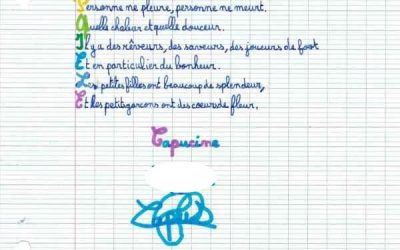 Personne ne pleure, personne ne meurt.
Quelle chaleur et quelle douceur.
Il y a des rêveurs, des saveurs, des joueurs de foot
Et en particulier du bonheur.
Les petites filles ont beaucoup de splendeur,
Et les petits garçons ont des cœurs de fleur.
Capucine